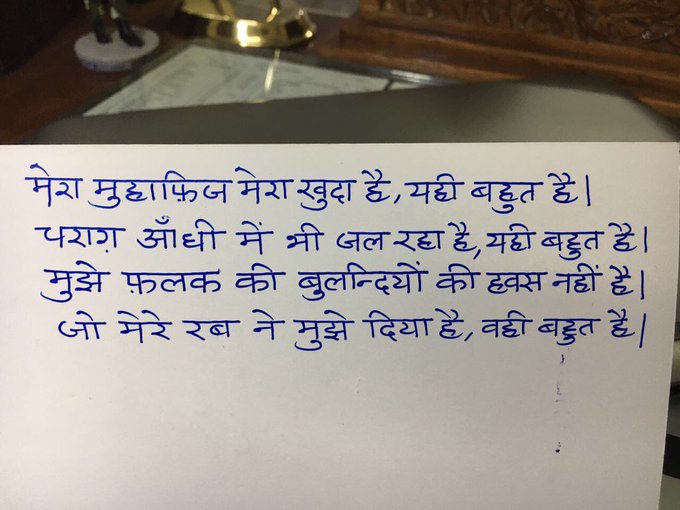 मेरा मुहाफ़िज मेरा खुदा है, यही बहुत है।
चराग़ आँधी में भी जल रहा है, यही बहुत है।
मुझे फ़लक की बुलन्दियों की हवस नहीं है।
जो मेरे रब ने मुझे दिया है, वही बहुत है।